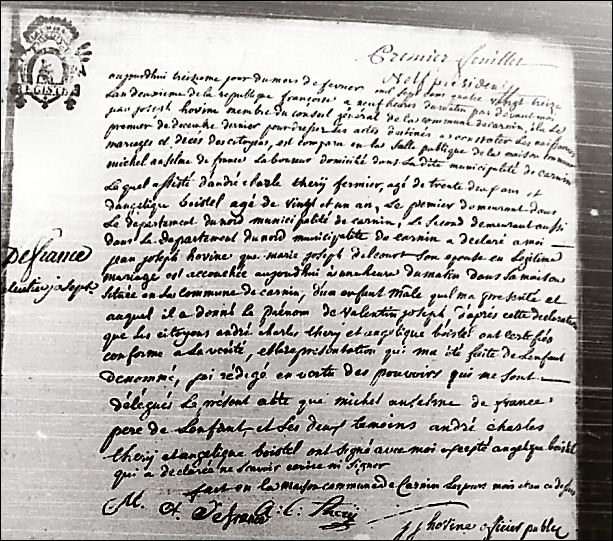 Premier feuillet
N Defrance président
aujourdhui treizieme jour du mois de fevrier mil sept cens quatre vingt treize
Lan deuxieme de la republique françoise a neuf heures du matin par devant moi
jean joseph hovine membre du conseil général de la commune de carnin, élu Le
premier de decembre dernier pour dresser Les actes destinés a constater Les naissances
mariages et décès des citoyens, est comparu en la salle publique de la maison commune
michel anselme de france Laboureur domicilié dans La dite municipalité de carnin
Lequel assisté d'andré charle thery fermier, agé de trente deux ans et
d'angelique boistel agé de vingt et un an, Le premier demeurant dans
Le departement du nord municipalité de carnin, Le second demeurant aussi
dans Le departement du nord municipalité de carnin a déclaré a moi
jean joseph hovine que marie joseph delcourt son epouse en Legitime
mariage est accouchée aujourdhui à une heure du matin dans sa maison
Située en Les commune de carnin, d'un enfant mâle qu'il ma presenté et
auquel il a donné le prénom de Valentin joseph d'après cette declaration
que Les citoyens andré charles thery et angelique boistel ont certifiés
conforme a La verité, et la représentation qui ma été faite de Lenfant
denommé, j'ai rédigé en vertu des pouvoirs qui me sont
délégués Le présent acte que michel anselme de france
pere de Lenfant, et Les deux temoins andré charles
thery et angelique boistel ont signé avec moi excepté angelique boistel
qui a declarée ne savoir ecrire ni signer
fait en la maison commune de Carnin Les jours mois et an ci dessus
M. A. Defrance A: C: thery
j j hovine officier public
Defrance
valentin joseph